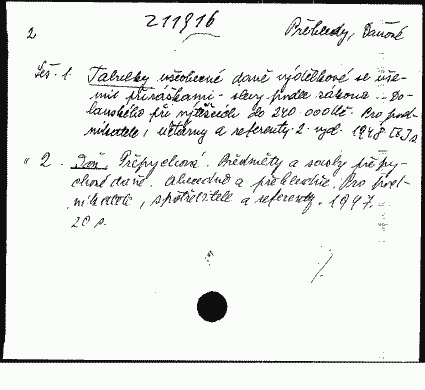 211916
2 Přehledy, Daňové
Seš. 1. Tabulky všeobecné daně výdělkové se vše-
mi přirážkami - slevy podle zákona Do-
lanského při výtěžcích do 240.000 Kčs. Pro pod-
nikatele, účtárny a referenty. 2. vyd. 1948
" 2. Daň Přepychová. Předměty a sazby přepy-
chové daně. Abecedně a přehledně. Pro pod-
nikatele, spotřebitele a referenty. 1947.
20 s.